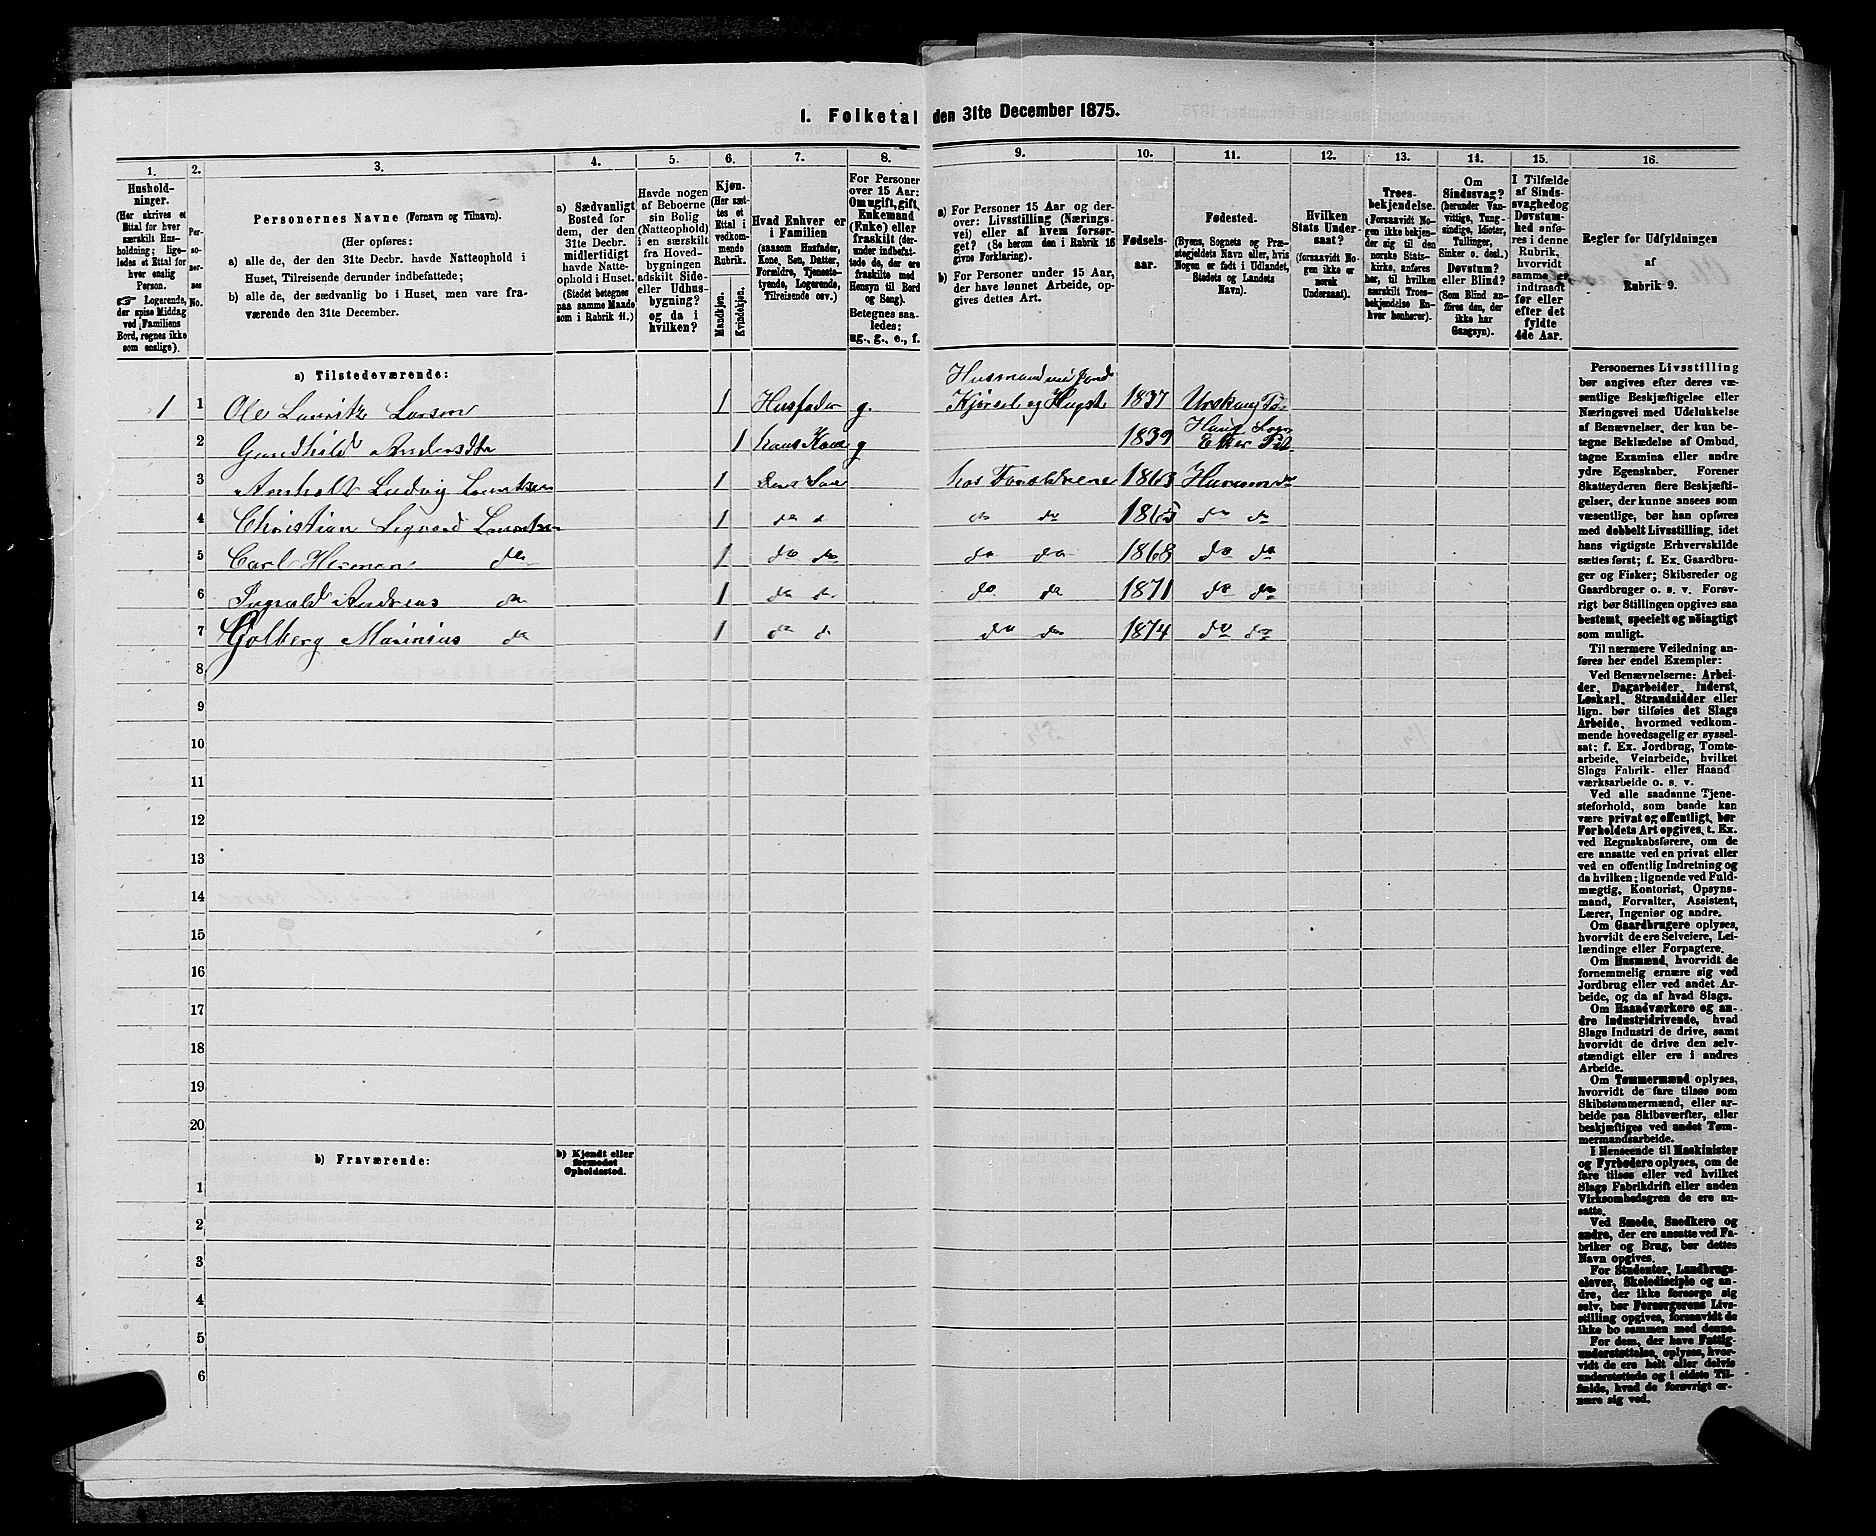 1. Folketal den 31te December 1875.
1.
Hushold-
ninger.
(Her skrives et
Ettal for hver
særskilt Hus-
holdning; lige-
ledes et Ettal for
hver enslig
Person.
☞ Logerende,
der spise Middag
ved Familiens
Bord, regnes ikke
som enslige).
2.
Per-
so-
ner-
nes
No.
3.
Personernes Navne (Fornavn og Tilnavn).
(Her opføres:
a) alle de, der den 31te Decbr. havde Natteophold i
Huset, Tilreisende derunder indbefattede;
b) alle de, der sædvanlig bo i Huset, men vare fra-
værende den 31te December.
4.
a) Sædvanligt
Bosted for
dem, der den
31te Decbr.
midlertidigt
havde Natte-
ophold i Huset.
(Stedet betegnes
paa samme Maade
som i Rubrik 11.)
5.
Havde nogen
af Beboerne
sin Bolig
(Natteophold)
i en særskilt
fra Hoved-
bygningen
adskilt Side-
eller Udhus-
bygning?
og da i
hvilken?
6.
Kjøn.
(Her sæt-
tes et
Ettal i
vedkom-
mende
Rubrik.
Mandkjøn.
Kvindekjøn.
7.
Hvad Enhver er
i Familien
(saasom Husfader,
Kone, Søn, Datter,
Forældre, Tjeneste-
tyende, Logerende,
Tilreisende osv.)
8.
For Personer
over 15 Aar:
Om ugift, gift,
Enkemand
(Enke) eller
fraskilt (der-
under indbefat-
tede de, der ere
fraskilte med
Hensyn til Bord
og Seng).
Betegnes saa-
ledes:
ug., g., e., f.
9.
a) For Personer 15 Aar og der-
over: Livsstilling (Nærings-
vei) eller af hvem forsør-
get? (Se herom den i Rubrik 16
givne Forklaring).
b) For Personer under 15 Aar,
der have lønnet Arbeide, op-
gives dettes Art.
10.
Fødsels-
aar.
11.
Fødested.
(Byens, Sognets og Præ-
stegjeldets Navn eller, hvis
Nogen er født i Udlandet,
Stedets og Landets
Navn).
12.
Hvilken
Stats Under-
saat?
(forsaavidt No-
gen ikke er
norsk
Undersaat).
13.
Troes-
bekjendelse.
(Forsaavidt No-
gen ikke bekjen-
der sig til den
norske Stats-
kirke, anføres
her, til hvilken
særskilt Troes-
bekjendelse En-
hver henhører).
14.
Om
Sindssvag?
(herunder Van-
vittige, Tung-
sindige, Idioter,
Tullinger,
Sinker o. desl.)
Døvstum?
eller Blind?
(Som Blind an-
føres den, der
ikke har
Gangsyn).
15.
I Tilfælde
af Sinds-
svaghed og
Døvstum-
hed anfø-
res i denne
Rubrik,
hvorvidt
samme er
indtraadt
før eller
efter det
fyldte
4de Aar.
16.
Regler for Udfyldningen
af
Rubrik 9.
a) Tilstedeværende:
Husmand med Jord
1 1 Ole Lauritz Larsen 1 Husfader g. Kjørsel og Hugst 1837
2 Gundhild Andersdtr 1 hans Kone g 1839
3 Anholt Ludvig Lauritzen 1 Deres Søn hos Forældrene 1863
4 Christian Sigvard Lauritzen 1 do do do do 1865 do do
5 Carl Herman do 1 do do do do 1868 do do
6 Ingvald Andreas do 1 do do do do 1871 do do
7 Golberg Marinius do 1 do do do do 1874 do do
8
9
10
11
12
13
14
15
16
17
18
19
20
b) Fraværende:
b) Kjendt eller
formodet
Opholdssted.
1
2
3
4
5
6
Personernes Livsstilling
bør angives efter deres væ-
sentlige Beskjæftigelse eller
Næringsvei med Udelukkelse
af Benævnelser, der kun be-
tegne Beklædelse af Ombud,
tagne Examina eller andre
ydre Egenskaber. Forener
Skatteyderen flere Beskjæfti-
gelser, der kunne ansees som
væsentlige, bør han opføres
med dobbelt Livsstilling, idet
hans vigtigste Erhvervskilde
sættes først; f. Ex. Gaardbru-
ger og Fisker; Skibsreder og
Gaardbruger o. s. v. Forøv-
rigt bør Stillingen opgives saa
bestemt, specielt og nöiagtigt
som muligt.
Til nærmere Veiledning an-
føres her endel Exempler:
Ved Benævnelserne: Arbei-
der, Dagarbeider, Inderst,
Løskarl, Strandsidder eller
lign. bør tilføies det Slags
Arbeide, hvormed vedkom-
mende hovedsagelig er syssel-
sat; f. Ex. Jordbrug, Tomte-
arbeide, Veiarbeide, hvilket
Slags Fabrik- eller Haand
værksarbeide o. s. v.
Ved alle saadanne Tjene-
steforhold, som baade kan
være privat og offentligt, bør
Forholdets Art opgives, t. Ex.
ved Regnskabsførere, om de
ere ansatte ved en privat eller
ved en offentlig Indretning og
da hvilken; lignende ved Fuld-
mægtig, Kontorist, Opsyns-
mand, Forvalter, Assistent,
Lærer, Ingeniør og andre.
Om Gaardbrugere oplyses,
hvorvidt de ere Selveiere, Lei-
lændinge eller Forpagtere.
Om Husmænd, hvorvidt de
fornemmelig ernære sig ved
Jordbrug eller ved andet Ar-
beide, og da af hvad Slags.
Om Haandværkere og an-
dre Industridrivende, hvad
Slags Industri de drive, samt
hvorvidt de drive den selv-
stændigt eller ere i andres
Arbeide.
Om Tømmermænd oplyses,
hvorvidt de fare tilsøs som
Skibstømmermænd, eller ar-
beide paa Skibsværfter, eller
beskjæftiges ved andet Tøm-
mermandsarbeide.
I Henseende til Maskinister
og Fyrbødere oplyses, om de
fare tilsøs eller ved hvilket
Slags Fabrikdrift eller anden
Virksomhedsgren de ere an-
satte.
Ved Smede, Snedkere og
andre, der ere ansatte ved Fa-
briker og Brug, bør dettes
Navn opgives.
For Studenter, Landbrugs-
elever, Skoledisciple og an-
dre, der ikke forsørge sig
selv, bør Forsørgerens Livs-
stilling opgives, forsaavidt de
ikke bo sammen med denne.
For dem, der have Fattig-
understøttelse, oplyses, hvor-
vidt de ere helt eller delvis
understøttede og i sidste Til-
fælde, hvad de forøvrigt er-
nære sig ved.